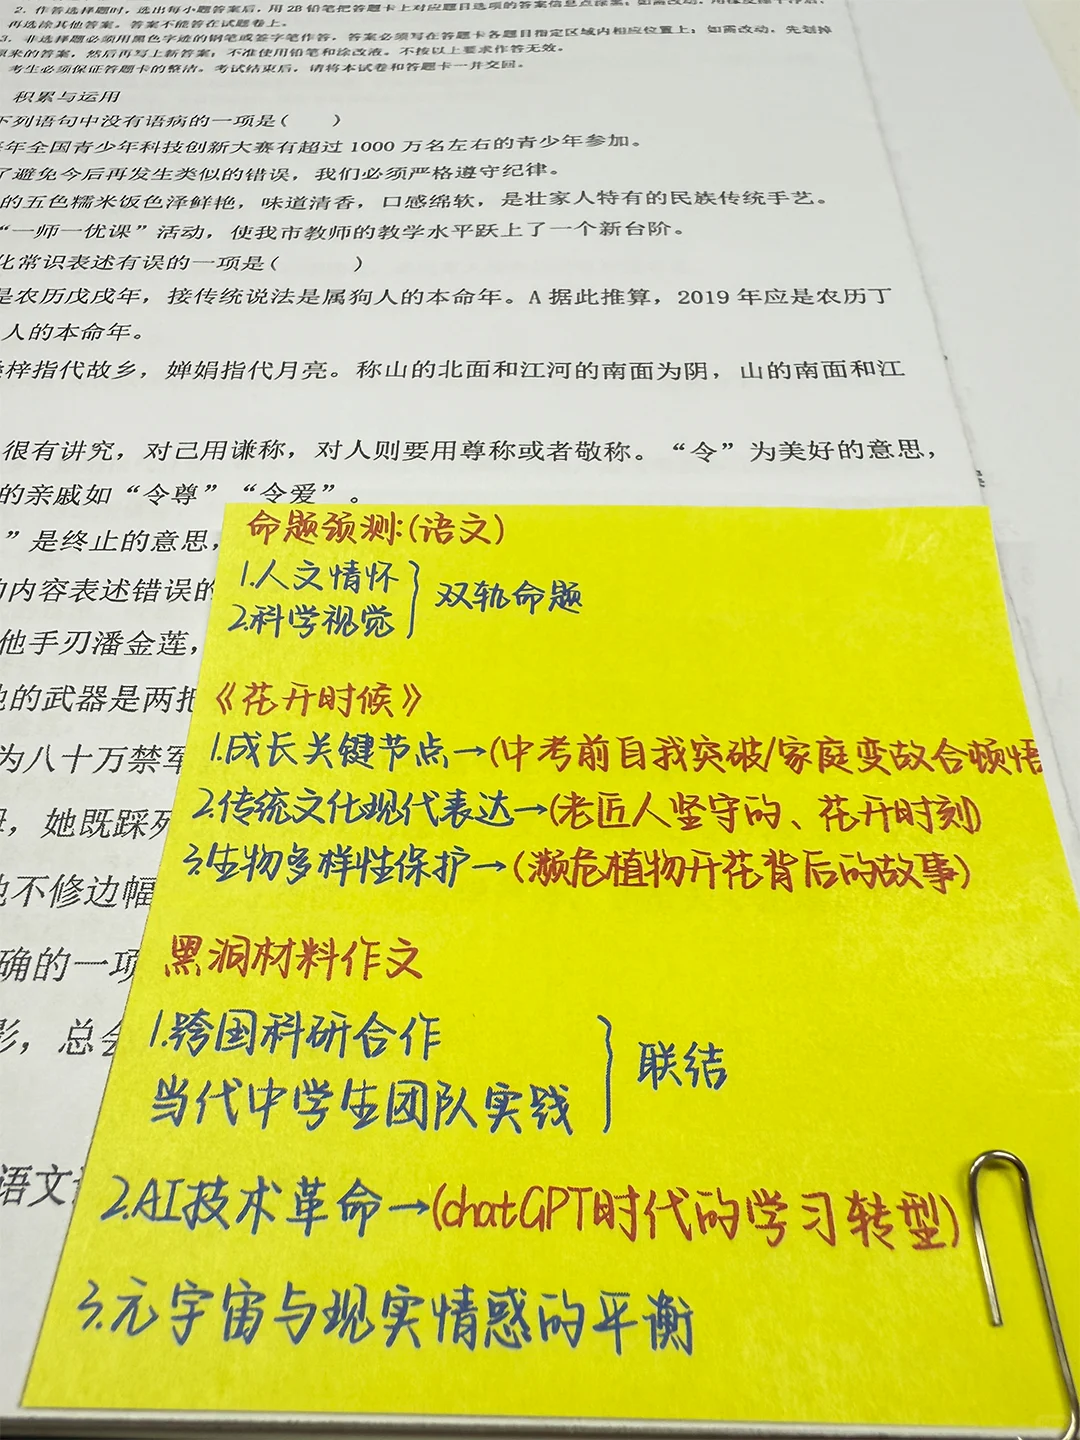 2. 作答选择题时，选出每小题答案后，用 2B 铅笔把答题卡上对应题目选项的答案信息点涂黑；如需改动，用橡皮擦干净后，
再选涂其他答案。答案不能答在试题卷上。
3. 非选择题必须用黑色字迹的钢笔或签字笔作答，答案必须写在答题卡各题目指定区域内相应位置上；如需改动，先划掉
原来的答案，然后再写上新答案；不准使用铅笔和涂改液。不按以上要求作答无效。
考生必须保证答题卡的整洁。考试结束后，请将本试卷和答题卡一并交回。
积累与运用
下列语句中没有语病的一项是(  )
年全国青少年科技创新大赛有超过 1000 万名左右的青少年参加。
了避免今后再发生类似的错误，我们必须严格遵守纪律。
的五色糯米饭色泽鲜艳，味道清香，口感绵软，是壮家人特有的民族传统手艺。
“一师一优课”活动，使我市教师的教学水平跃上了一个新台阶。
化常识表述有误的一项是(  )
是农历戊戌年，接传统说法是属狗人的本命年。A 据此推算，2019 年应是农历丁
人的本命年。
梓指代故乡，婵娟指代月亮。称山的北面和江河的南面为阴，山的南面和江
很有讲究，对己用谦称，对人则要用尊称或者敬称。“令”为美好的意思，
的亲戚如“令尊”“令爱”。
”是终止的意思，
内容表述错误的
他手刃潘金莲，
的武器是两把
为八十万禁军
，她既踩死
不修边幅
确的一项
影，总会
语文
命题预测:(语文)
1.人文情怀
2.科学视觉
双轨命题
《花开时候》
1.成长关键节点→(中考前自我突破/家庭变故合顿悟
2.传统文化现代表达→(老匠人坚守的、花开时刻)
3.生物多样性保护→(濒危植物开花背后的故事)
黑洞材料作文
1.跨国科研合作
当代中学生团队实践
联结
2.AI技术革命→(chatGPT时代的学习转型)
3.元宇宙与现实情感的平衡